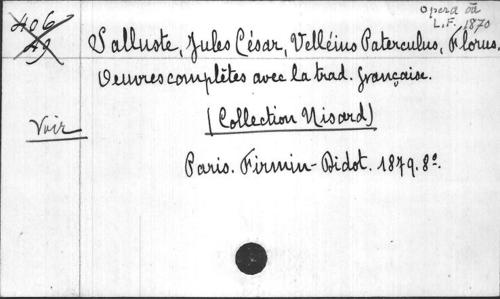 406
49
Opera oā
L.F. 1870
Salluste, Jules César, Velléius Paterculus, Florus.
Oeuvres complètes avec la trad. française.
(Collection Nisard)
Voir
Paris. Firmin-Didot. 1879. 8º.